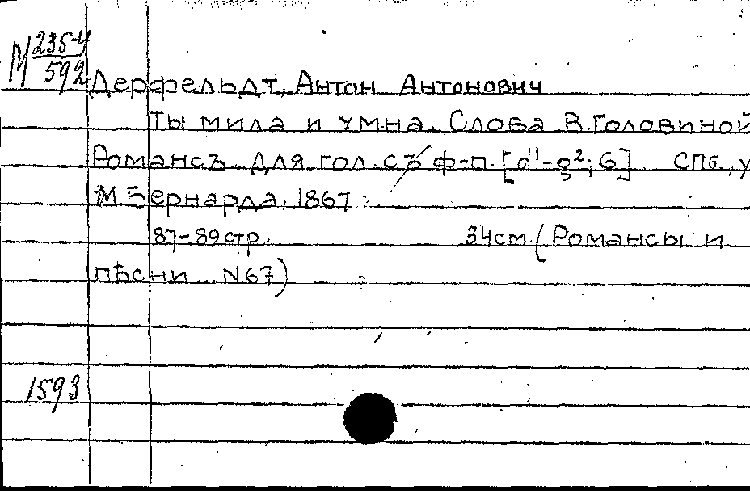 М 235-4
592
Дерфельдт, Антон Антонович
Ты мила и умна. Слова В. Головиной
Романсъ для гол. съ ф-п. [d¹-g²; G]. СПб., у
М Бернарда. 1867
87-89 стр. 34см. (Романсы и
пѣсни N67)
1593